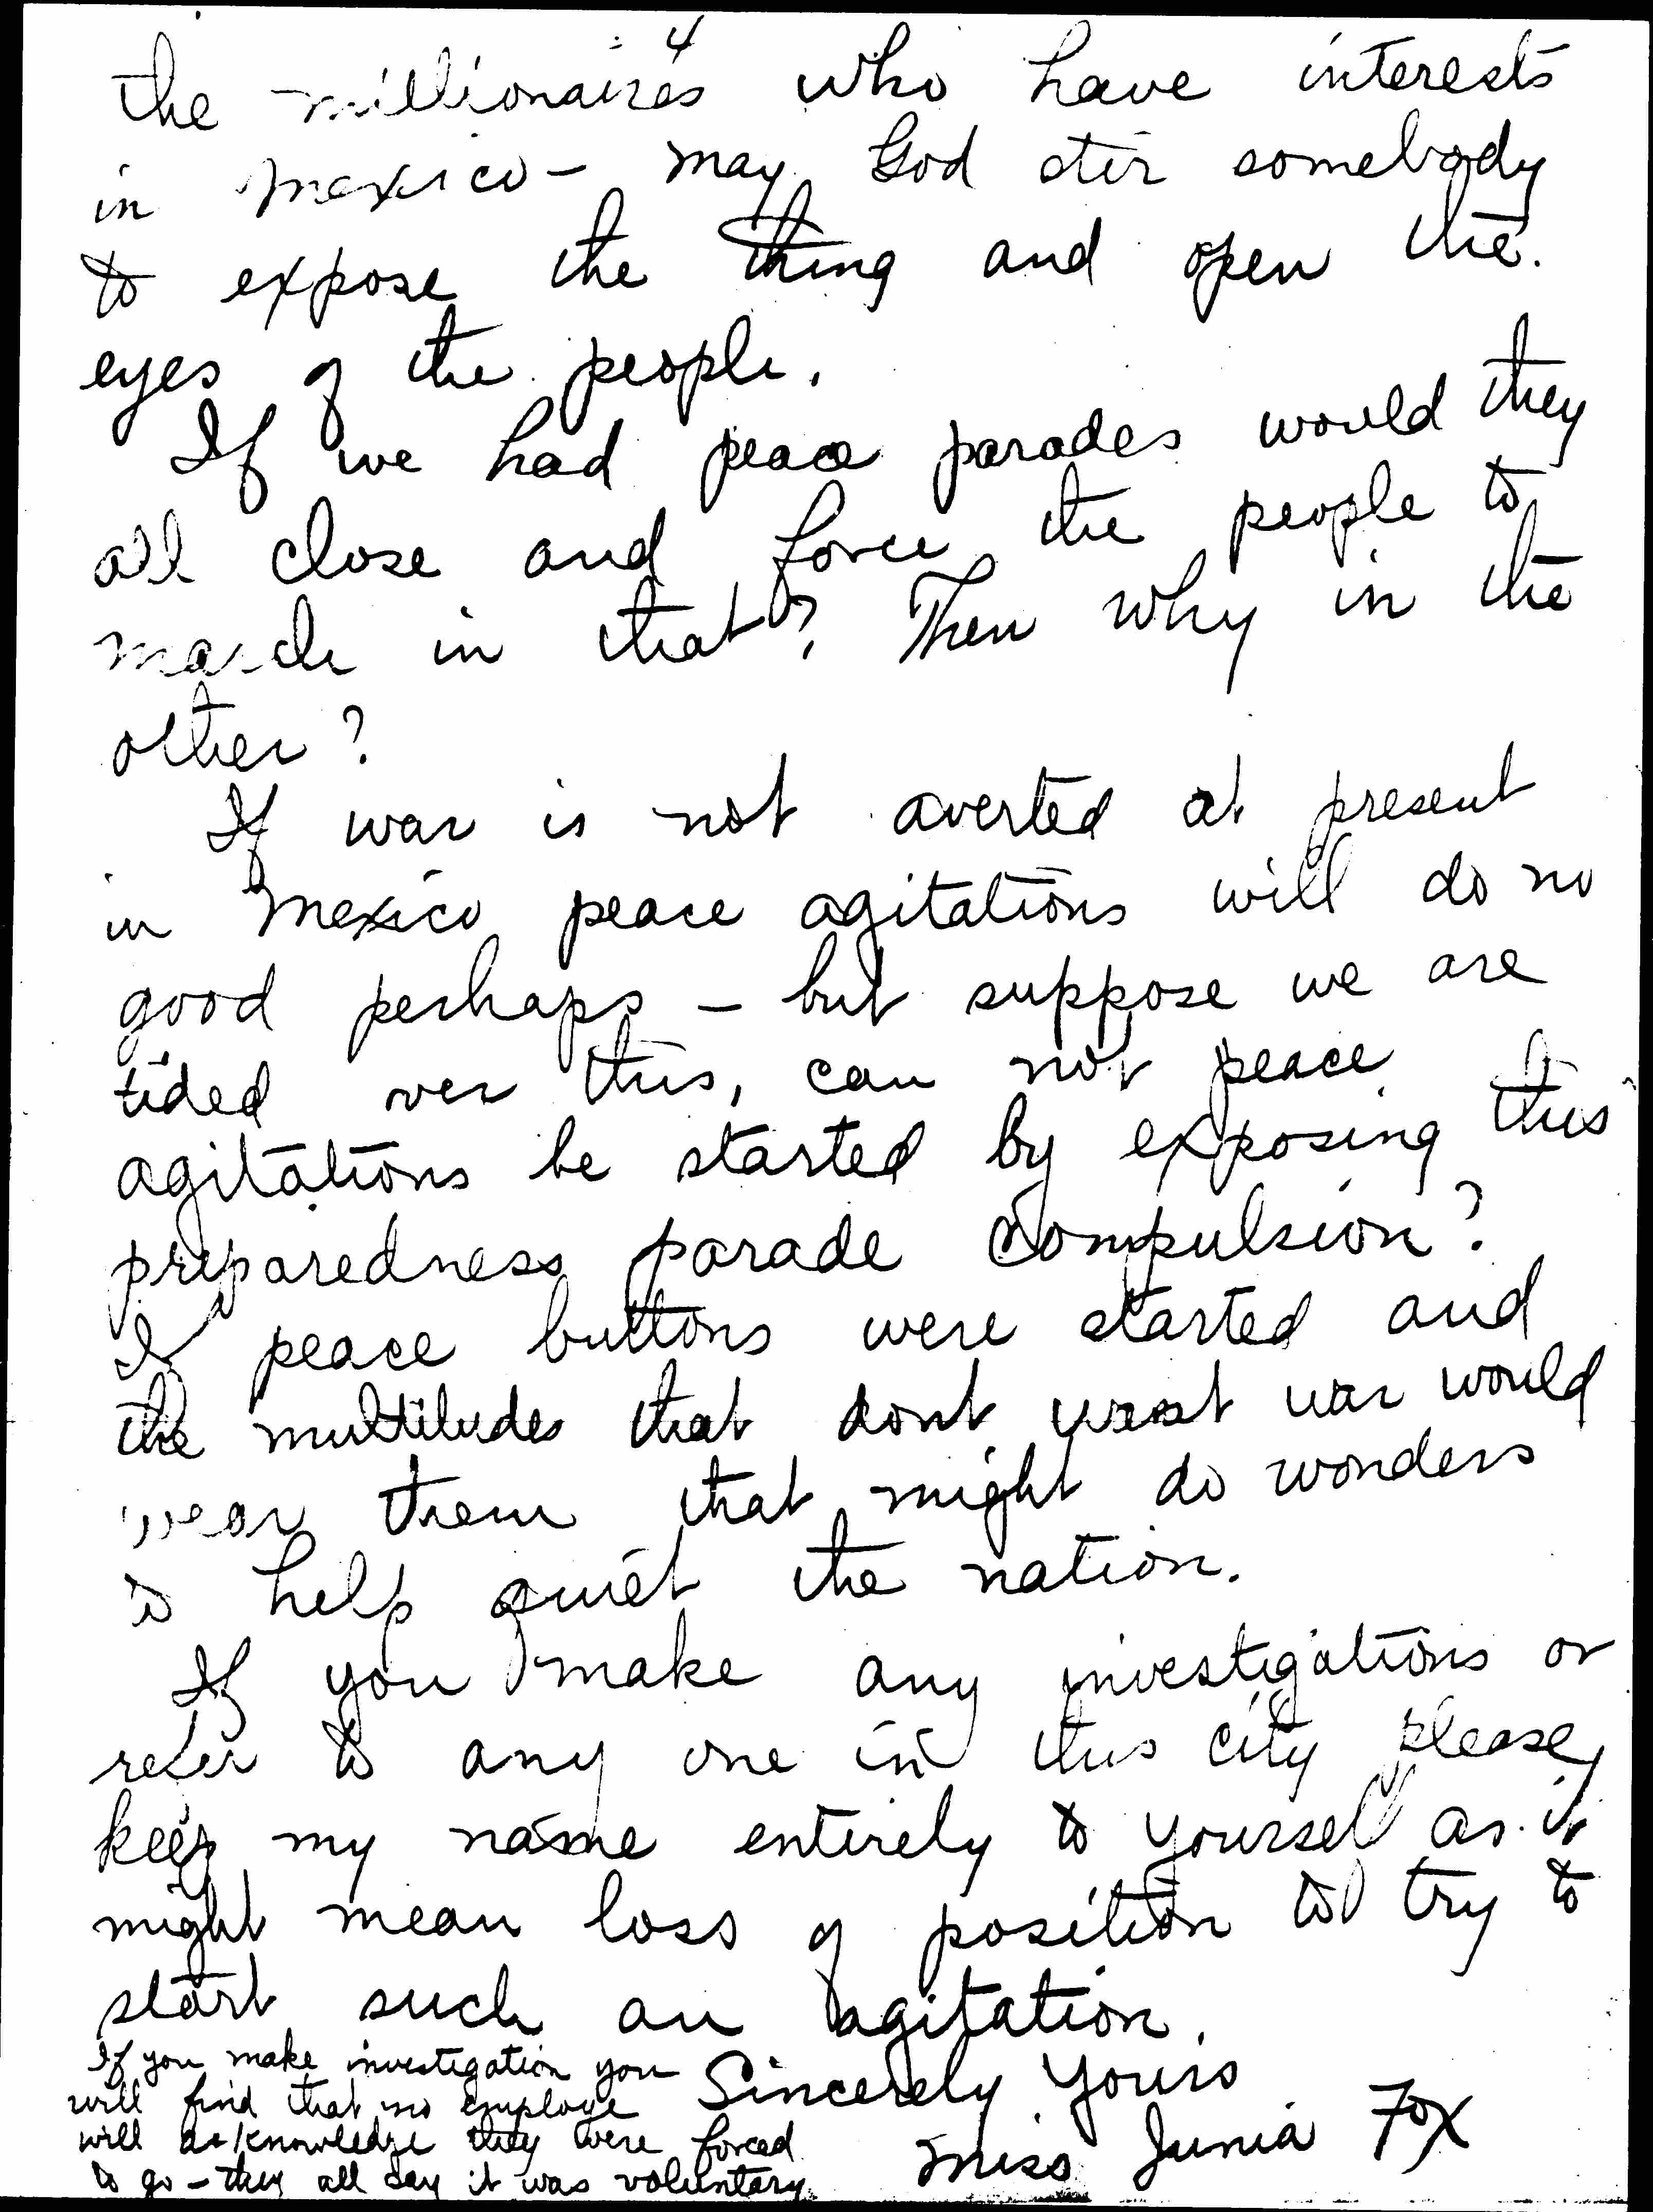 4
the millionaires who have interests
in Mexico - may God stir somebody
to expose the thing and open the
eyes of the people.
If we had peace parades would they
all close and force the people to
march in that? Then why in the
other?
If war is not averted at present
in Mexico peace agitations will do no
good perhaps - but suppose we are
tided over this, can not peace
agitations be started by exposing this
preparedness parade compulsion?
If peace buttons were started and
the multitudes that dont want war would
wear them that might do wonders
to help quiet the nation.
If you make any investigations or
refer to any one in this city please
keep my name entirely to yourself as it
might mean loss of position to try to
start such an agitation.
Sincerely Yours
Miss Junia Fox
If you make investigation you
will find that no employe
will acknowledge they were forced
to go - they all say it was voluntary